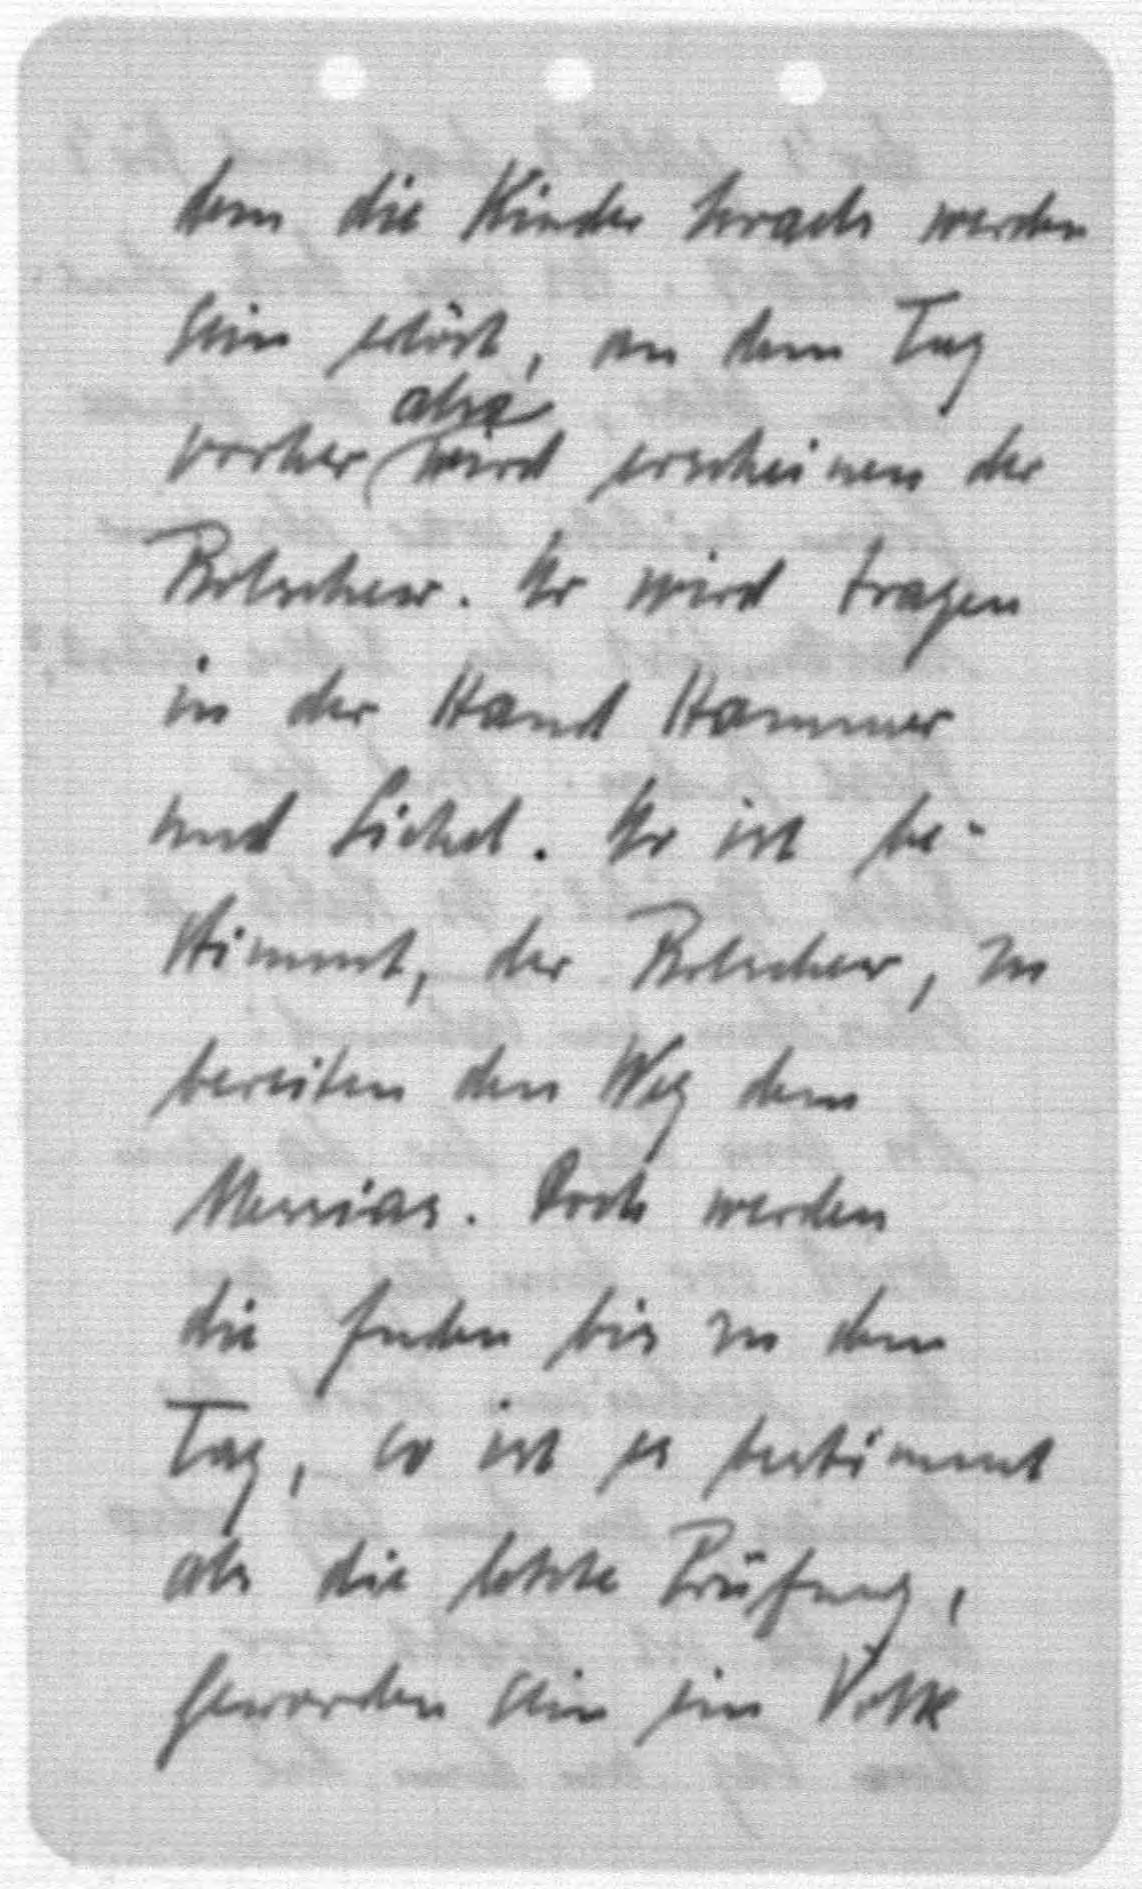 dem die Kinder Israels werden
sein erlöst, an dem Tag
also
vorher wird erscheinen der
Bolschew. Er wird tragen
in der Hand Hammer
und Sichel. Er ist be-
stimmt, der Bolschew, zu
bereiten den Weg dem
Messias. Doch werden
die Juden bis zu dem
Tag, so ist es bestimmt
als die letzte Prüfung,
geworden sein ein Volk